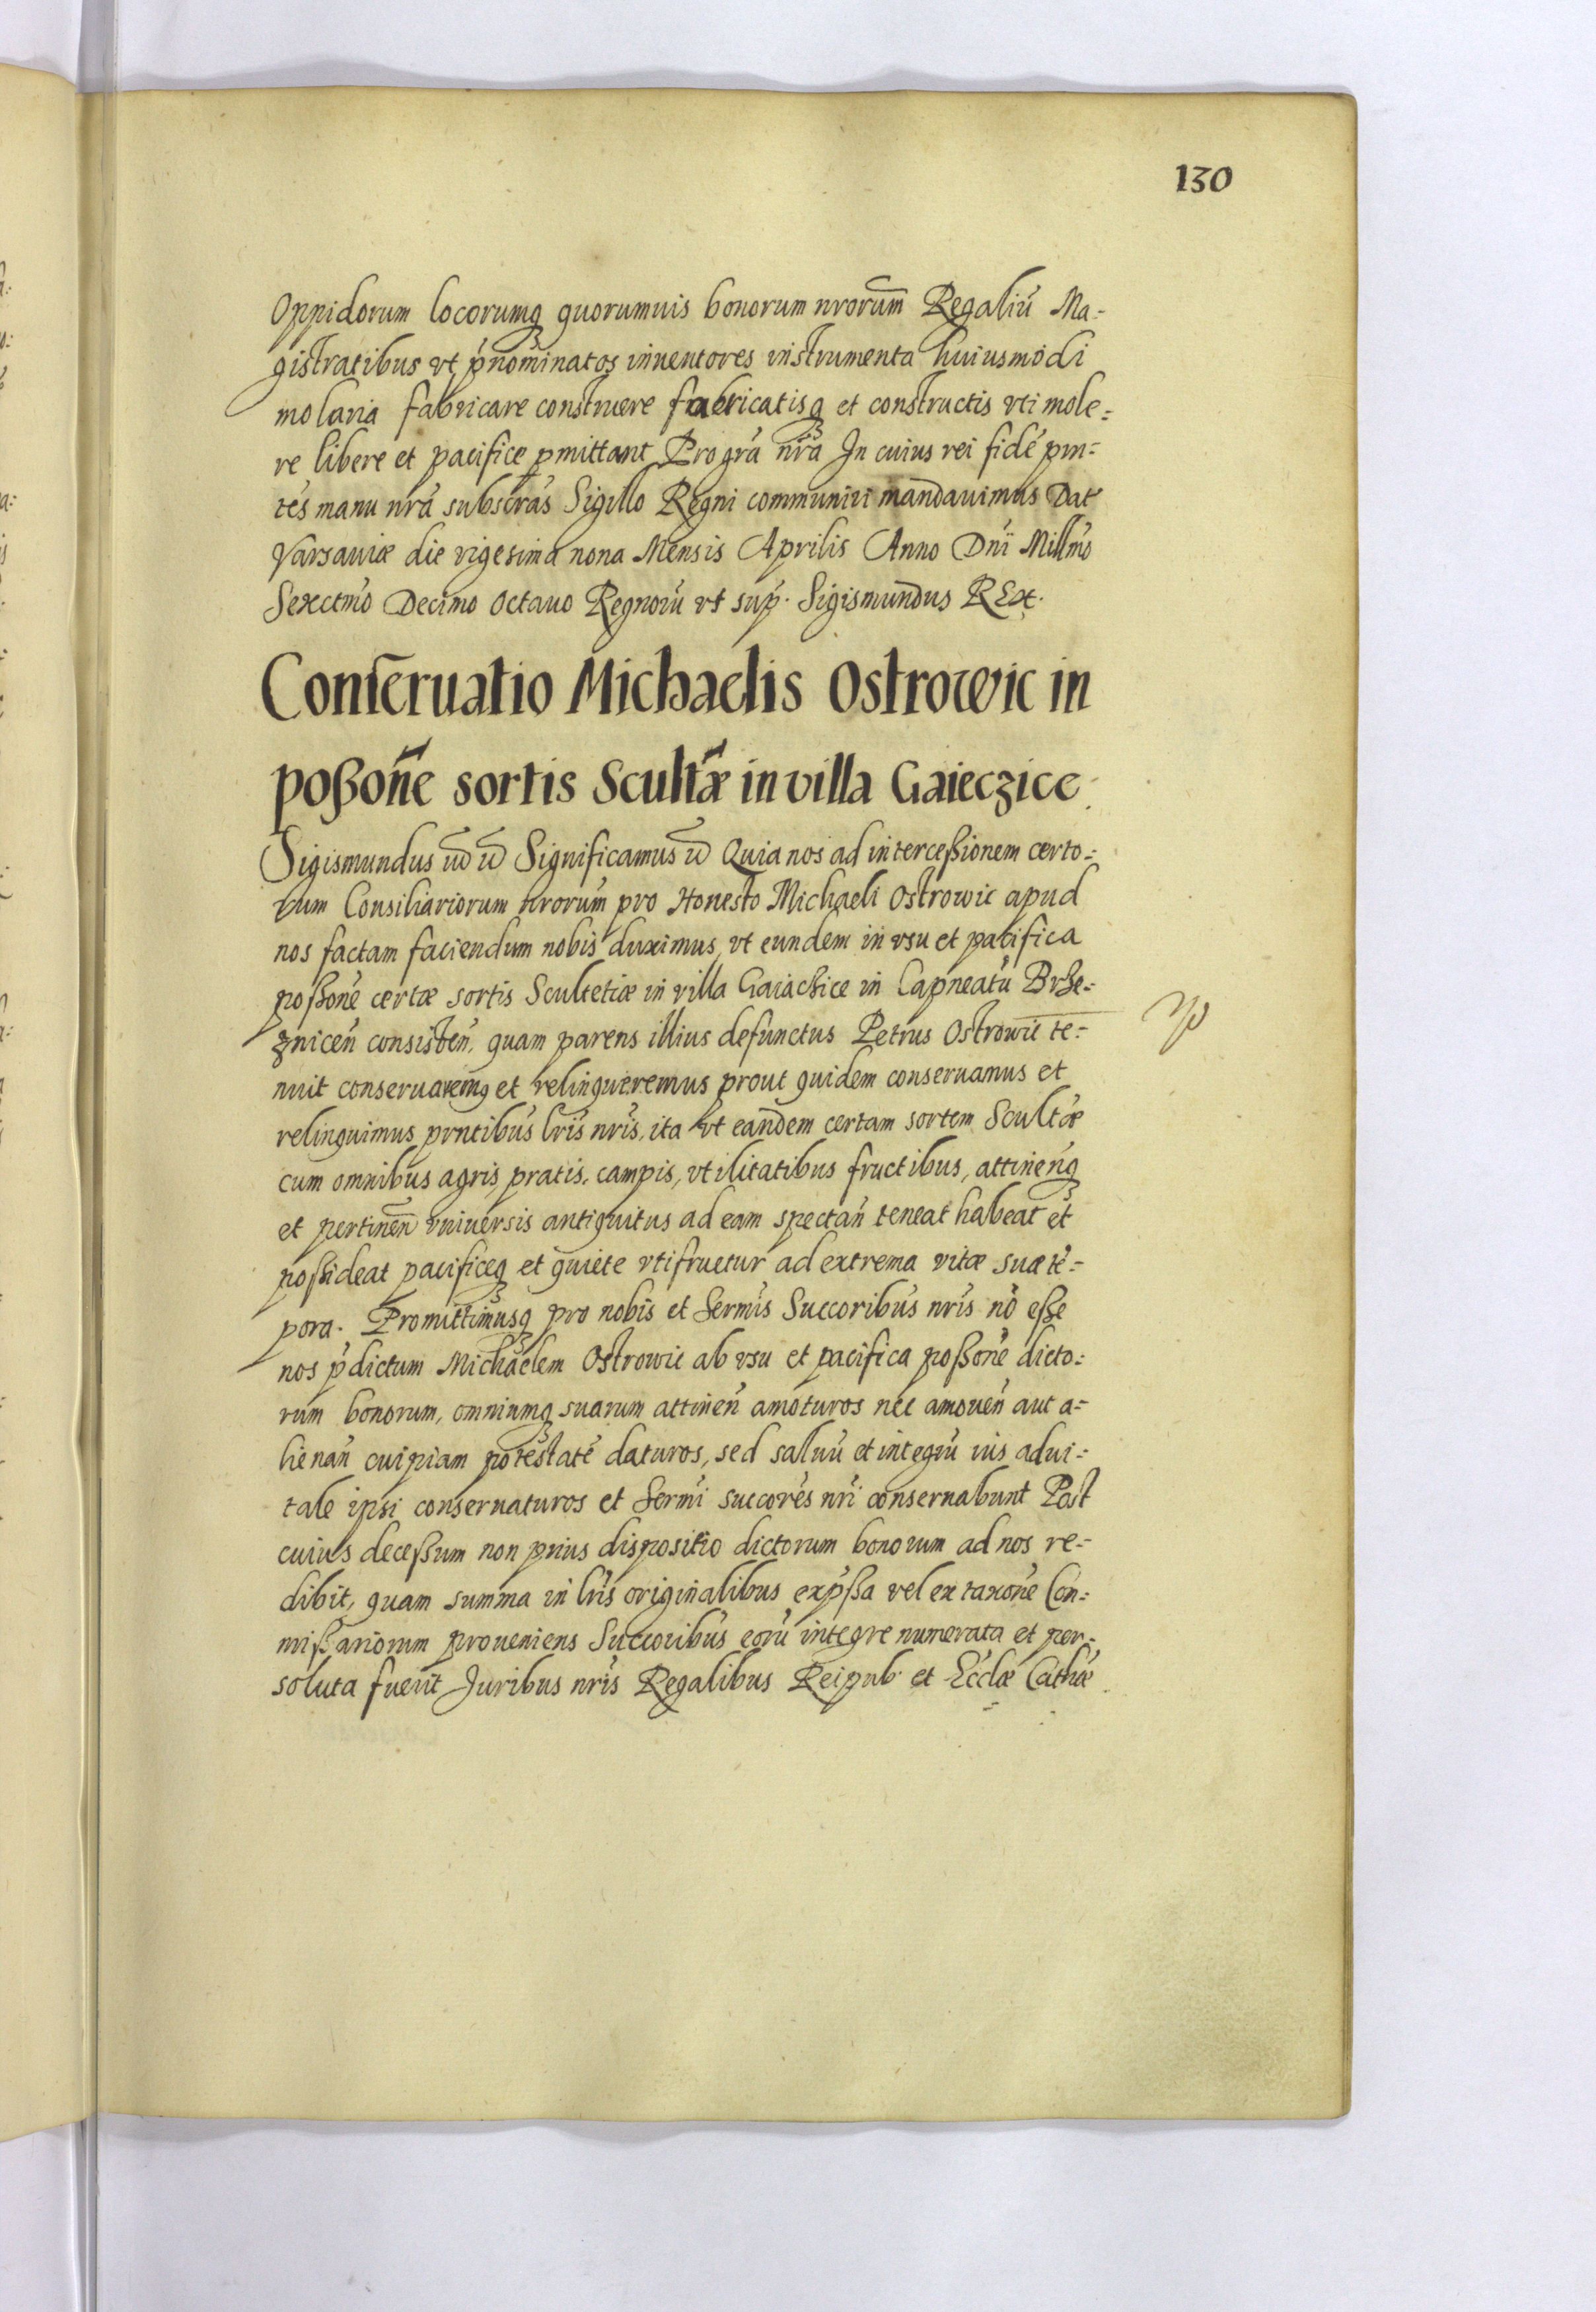 130
Oppidorum locorumq quorumuis bonorum nrorum̄ Regaliu᷃ Ma-
gistratibus vt p᷃nominatos inuentores instrumenta huiusmodi
molaria fabricare construere fabricatisq et constructis vti mole-
re libere et pacifice pmittant Pro gra᷃ nr᷃a In cuius rei fide᷃ pn᷃-
tes manu nra᷃ subscra᷃s Sigillo Regni communiri mandauimus Dat
Varsauiæ die vigesima nona Mensis Aprilis Anno Dni᷃ Millmo᷃
Sexctmo᷃ Decimo Octauo Regnoru᷃ vt sup᷃. Sigismundus REX.
Conseruatio Michaelis Ostrowic in
poßon̄e sortis Scult᷃æ in villa Gaieczice
Sigismundus Significamus Quia nos ad interceßionem certo-
rum Consiliariorum nrorum᷃ pro Honesto Michaeli Ostrowic apud
nos factam faciendum nobis duximus, vt eundem in vsu et pacifica
poßone᷃ certæ sortis Scultetiæ in villa Gaiachice in Capneatu᷃ Brze-
znicen᷃ consisten᷃. quam parens illius defunctus Petrus Ostrowic te-
nuit conseruaremq et relinqueremus prout quidem conseruamus et
relinquimus prntibus᷃ lris᷃ nris᷃, ita vt eandem certam sortem Scult᷃æ
cum omnibus agris, pratis, campis, vtilitatibus fructibus, attinen᷃q
et pertinen᷃ vniuersis antiquitus ad eam spectan᷃ teneat habeat et
poßideat pacificeq et quiete vtifruetur ad extrema vitæ suæ te᷃-
pora. Promittimusq pro nobis et Sermis᷃ Succoribus᷃ nris᷃ no᷃ eße
nos p᷃dictum Michaelem Ostrowic ab vsu et pacifica poßone᷃ dicto-
rum bonorum, omniumq suarum attinen᷃ amoturos nec amouen᷃ aut a-
lienan᷃ cuipiam potestate᷃ daturos, sed saluu᷃ et integru᷃ ius adui-
tale ipsi conseruaturos et Sermi᷃ succores᷃ nri᷃ conseruabunt Post
cuius deceßum non prius dispositio dictorum bonorum ad nos re-
dibit, quam summa in lris᷃ originalibus exp᷃ßa vel ex taxone᷃ Con-
mißariorum proueniens Succoribus᷃ eoru᷃ integre numerata et per-
soluta fuerit Juribus nris᷃ Regalibus Reipub. et Eccl᷃æ Cath᷃æ